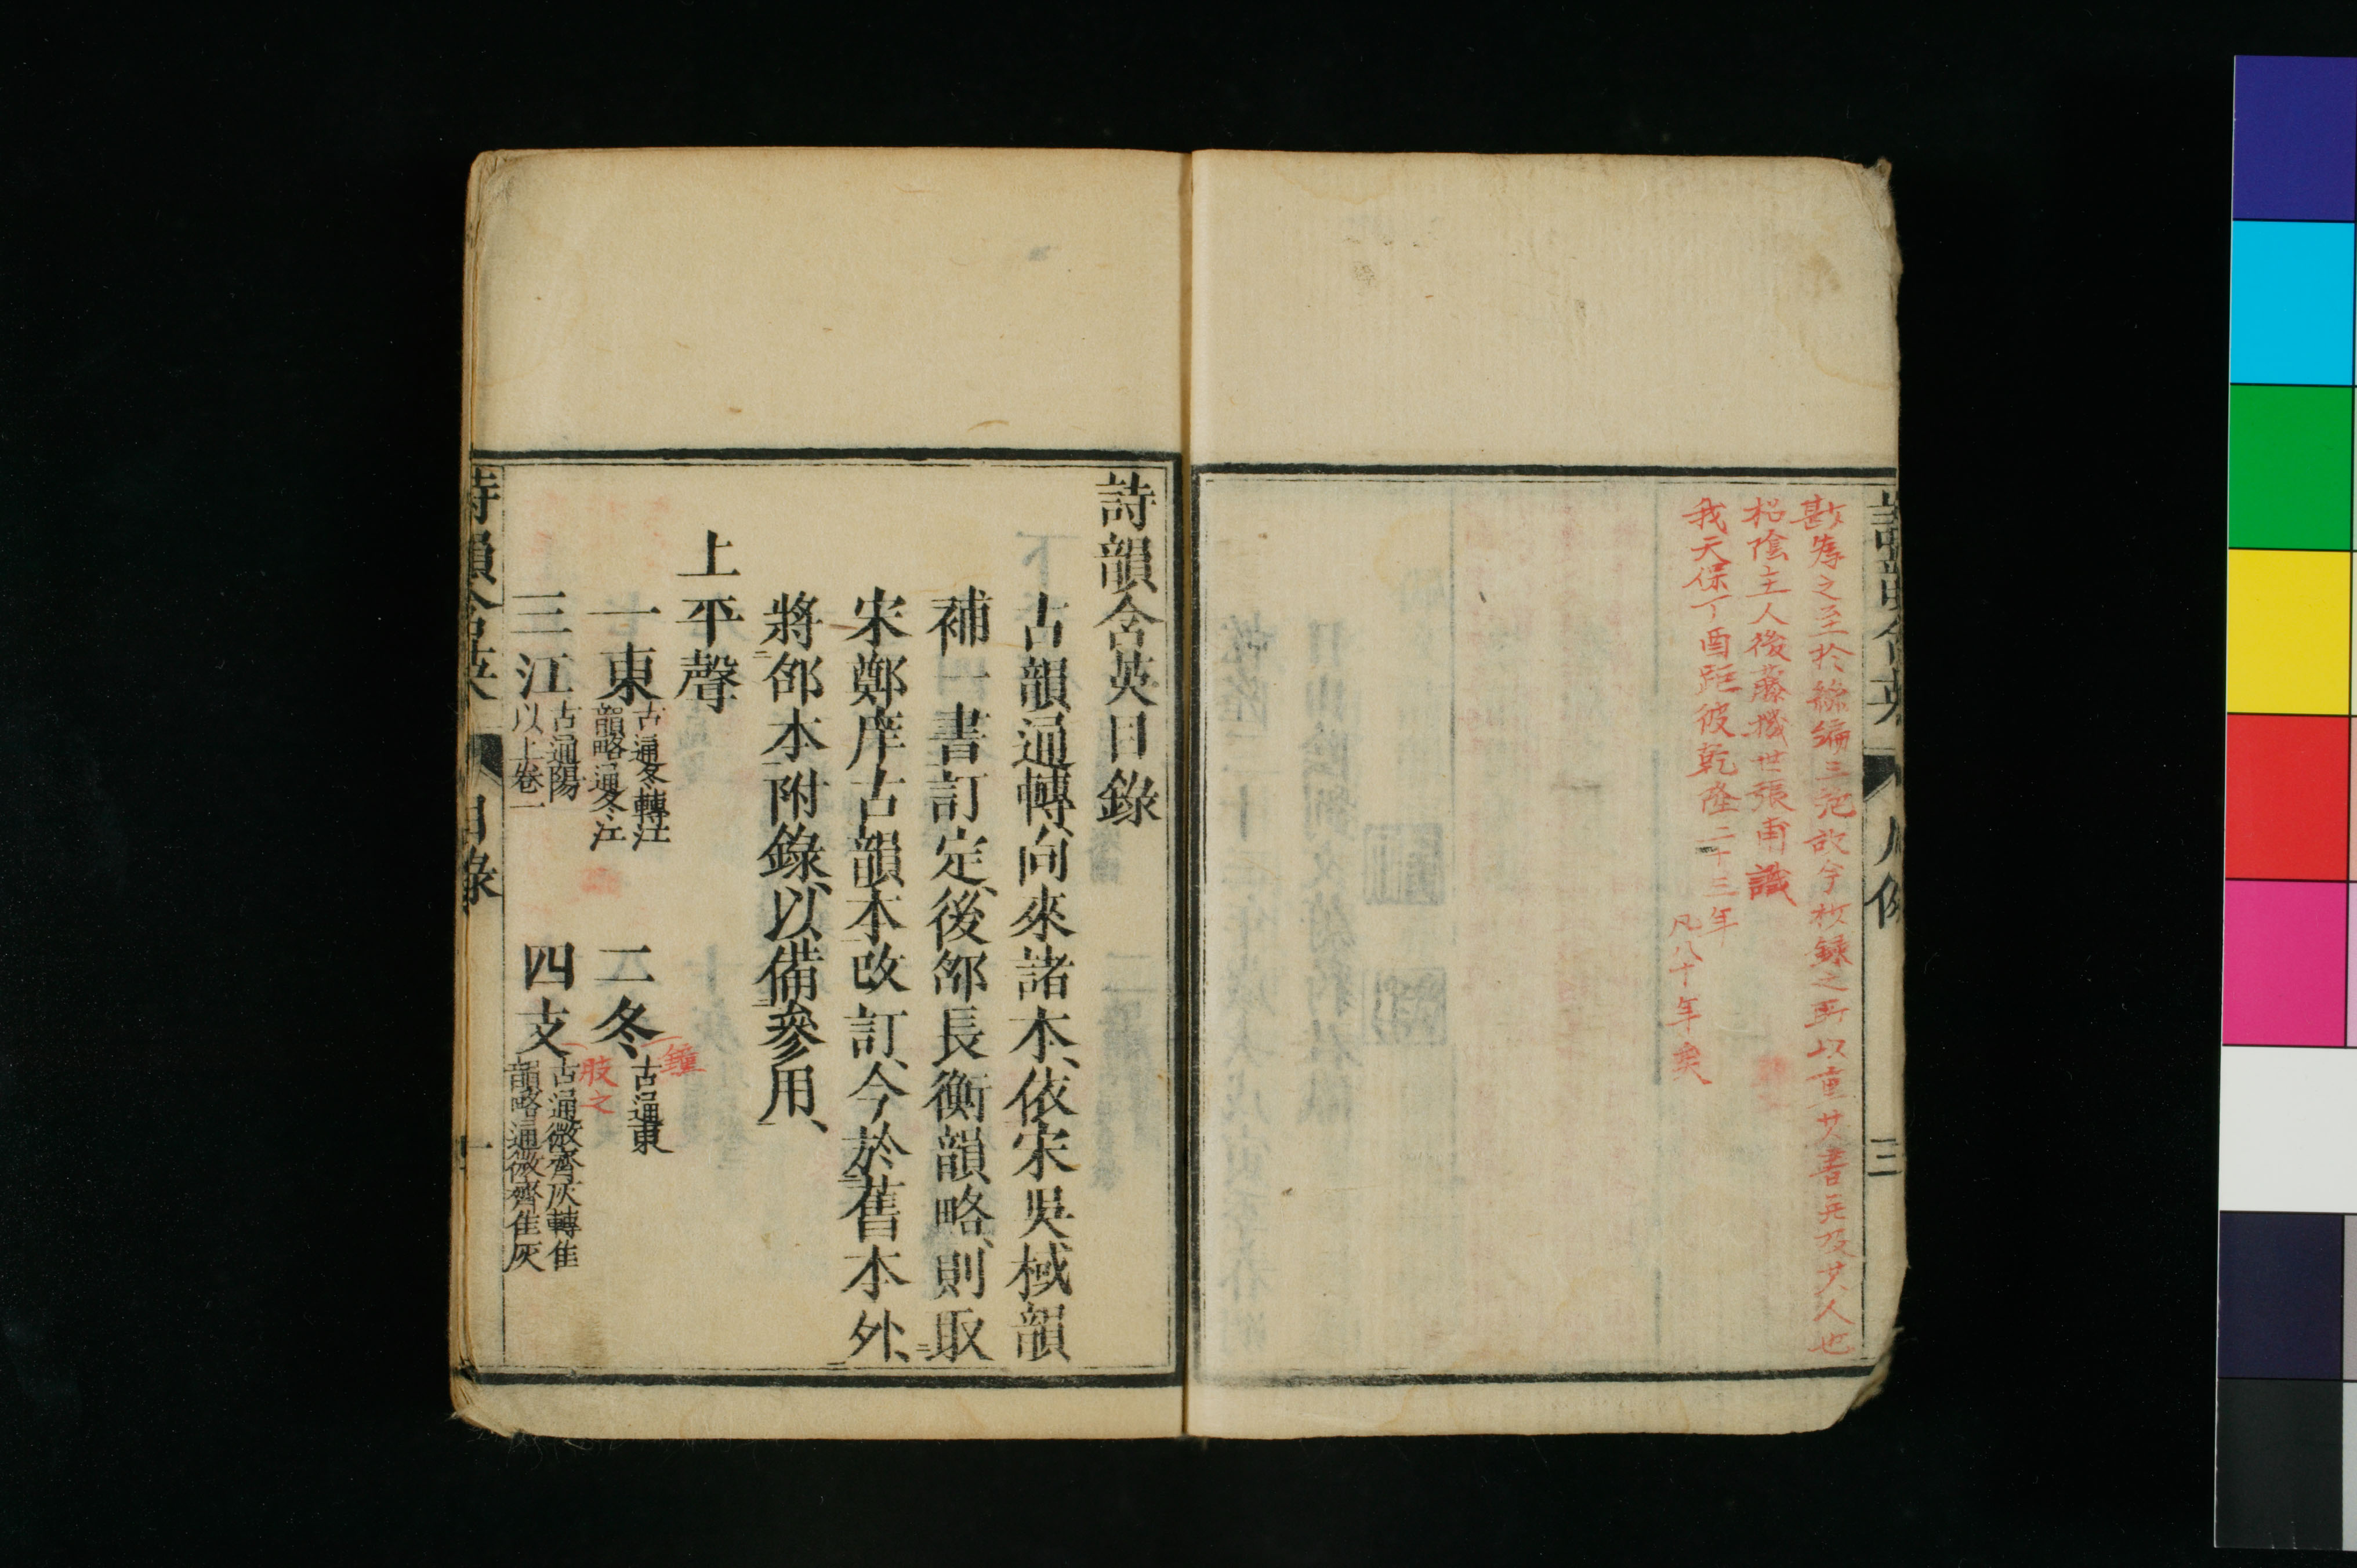 勘考之至於編三絶故今校録之所以重其書兼及其人也
松陰主人後藤機世張甫識
我天保丁酉距彼乾隆二十三年
凡八十年矣
三
詩韻含英目錄
古韻通轉、向來諸本、依宋吳棫韻
補一書訂定、後邵長衡韻略、則取
宋鄭庠古韻本改訂、今於舊本外、
將邵本附錄、以備參用、
上平聲
一東 古通冬轉江
韻略通冬江
二冬 古通東
鐘
三江 古通陽
以上卷一
四支 古通微齊灰轉佳
韻略通微齊佳灰
肢之
詩韻含英 目錄 一